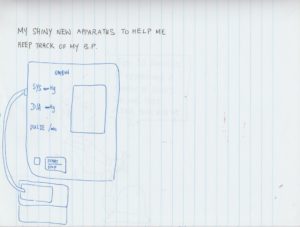 MY SHINY NEW APPARATUS TO HELP ME
KEEP TRACK OF MY B.P.
OMRON
SYS mmHg
DIA mmHg
PULSE /min
START
STOP